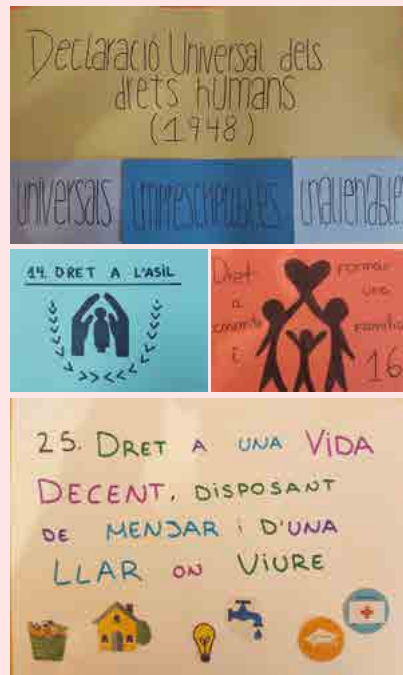 Declaració Universal dels
drets humans
(1948)
universals imprescriptibles inalienables
14. DRET A L'ASIL
Dret formar
a una
família
i
16
25. DRET A UNA VIDA
DECENT, DISPOSANT
DE MENJAR i D'UNA
LLAR ON VIURE